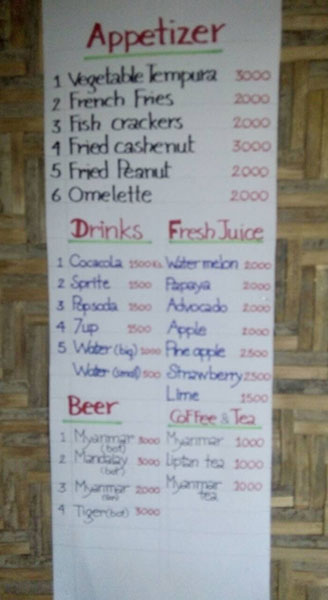 Appetizer
1 Vegetable Tempura 3000
2 French Fries 2000
3 Fish crackers 2000
4 Fried cashenut 3000
5 Fried Peanut 2000
6 Omelette 2000
Drinks
1 Cocacola 1500Ks
2 Sprite 1500
3 Popsoda 1500
4 7up 1500
5 Water (big) 1000
Water (small) 500
Fresh Juice
Water melon 2000
Papaya 2000
Advocado 2000
Apple 2000
Pine apple 2500
Strawberry 2500
Lime 1500
Beer
1 Myanmar 3000
(bot)
2 Mandalay 3000
(bot)
3 Myanmar 2000
4 Tiger (bot) 3000
Coffee & Tea
Myanmar 1000
Liptan tea 1000
Myanmar
tea